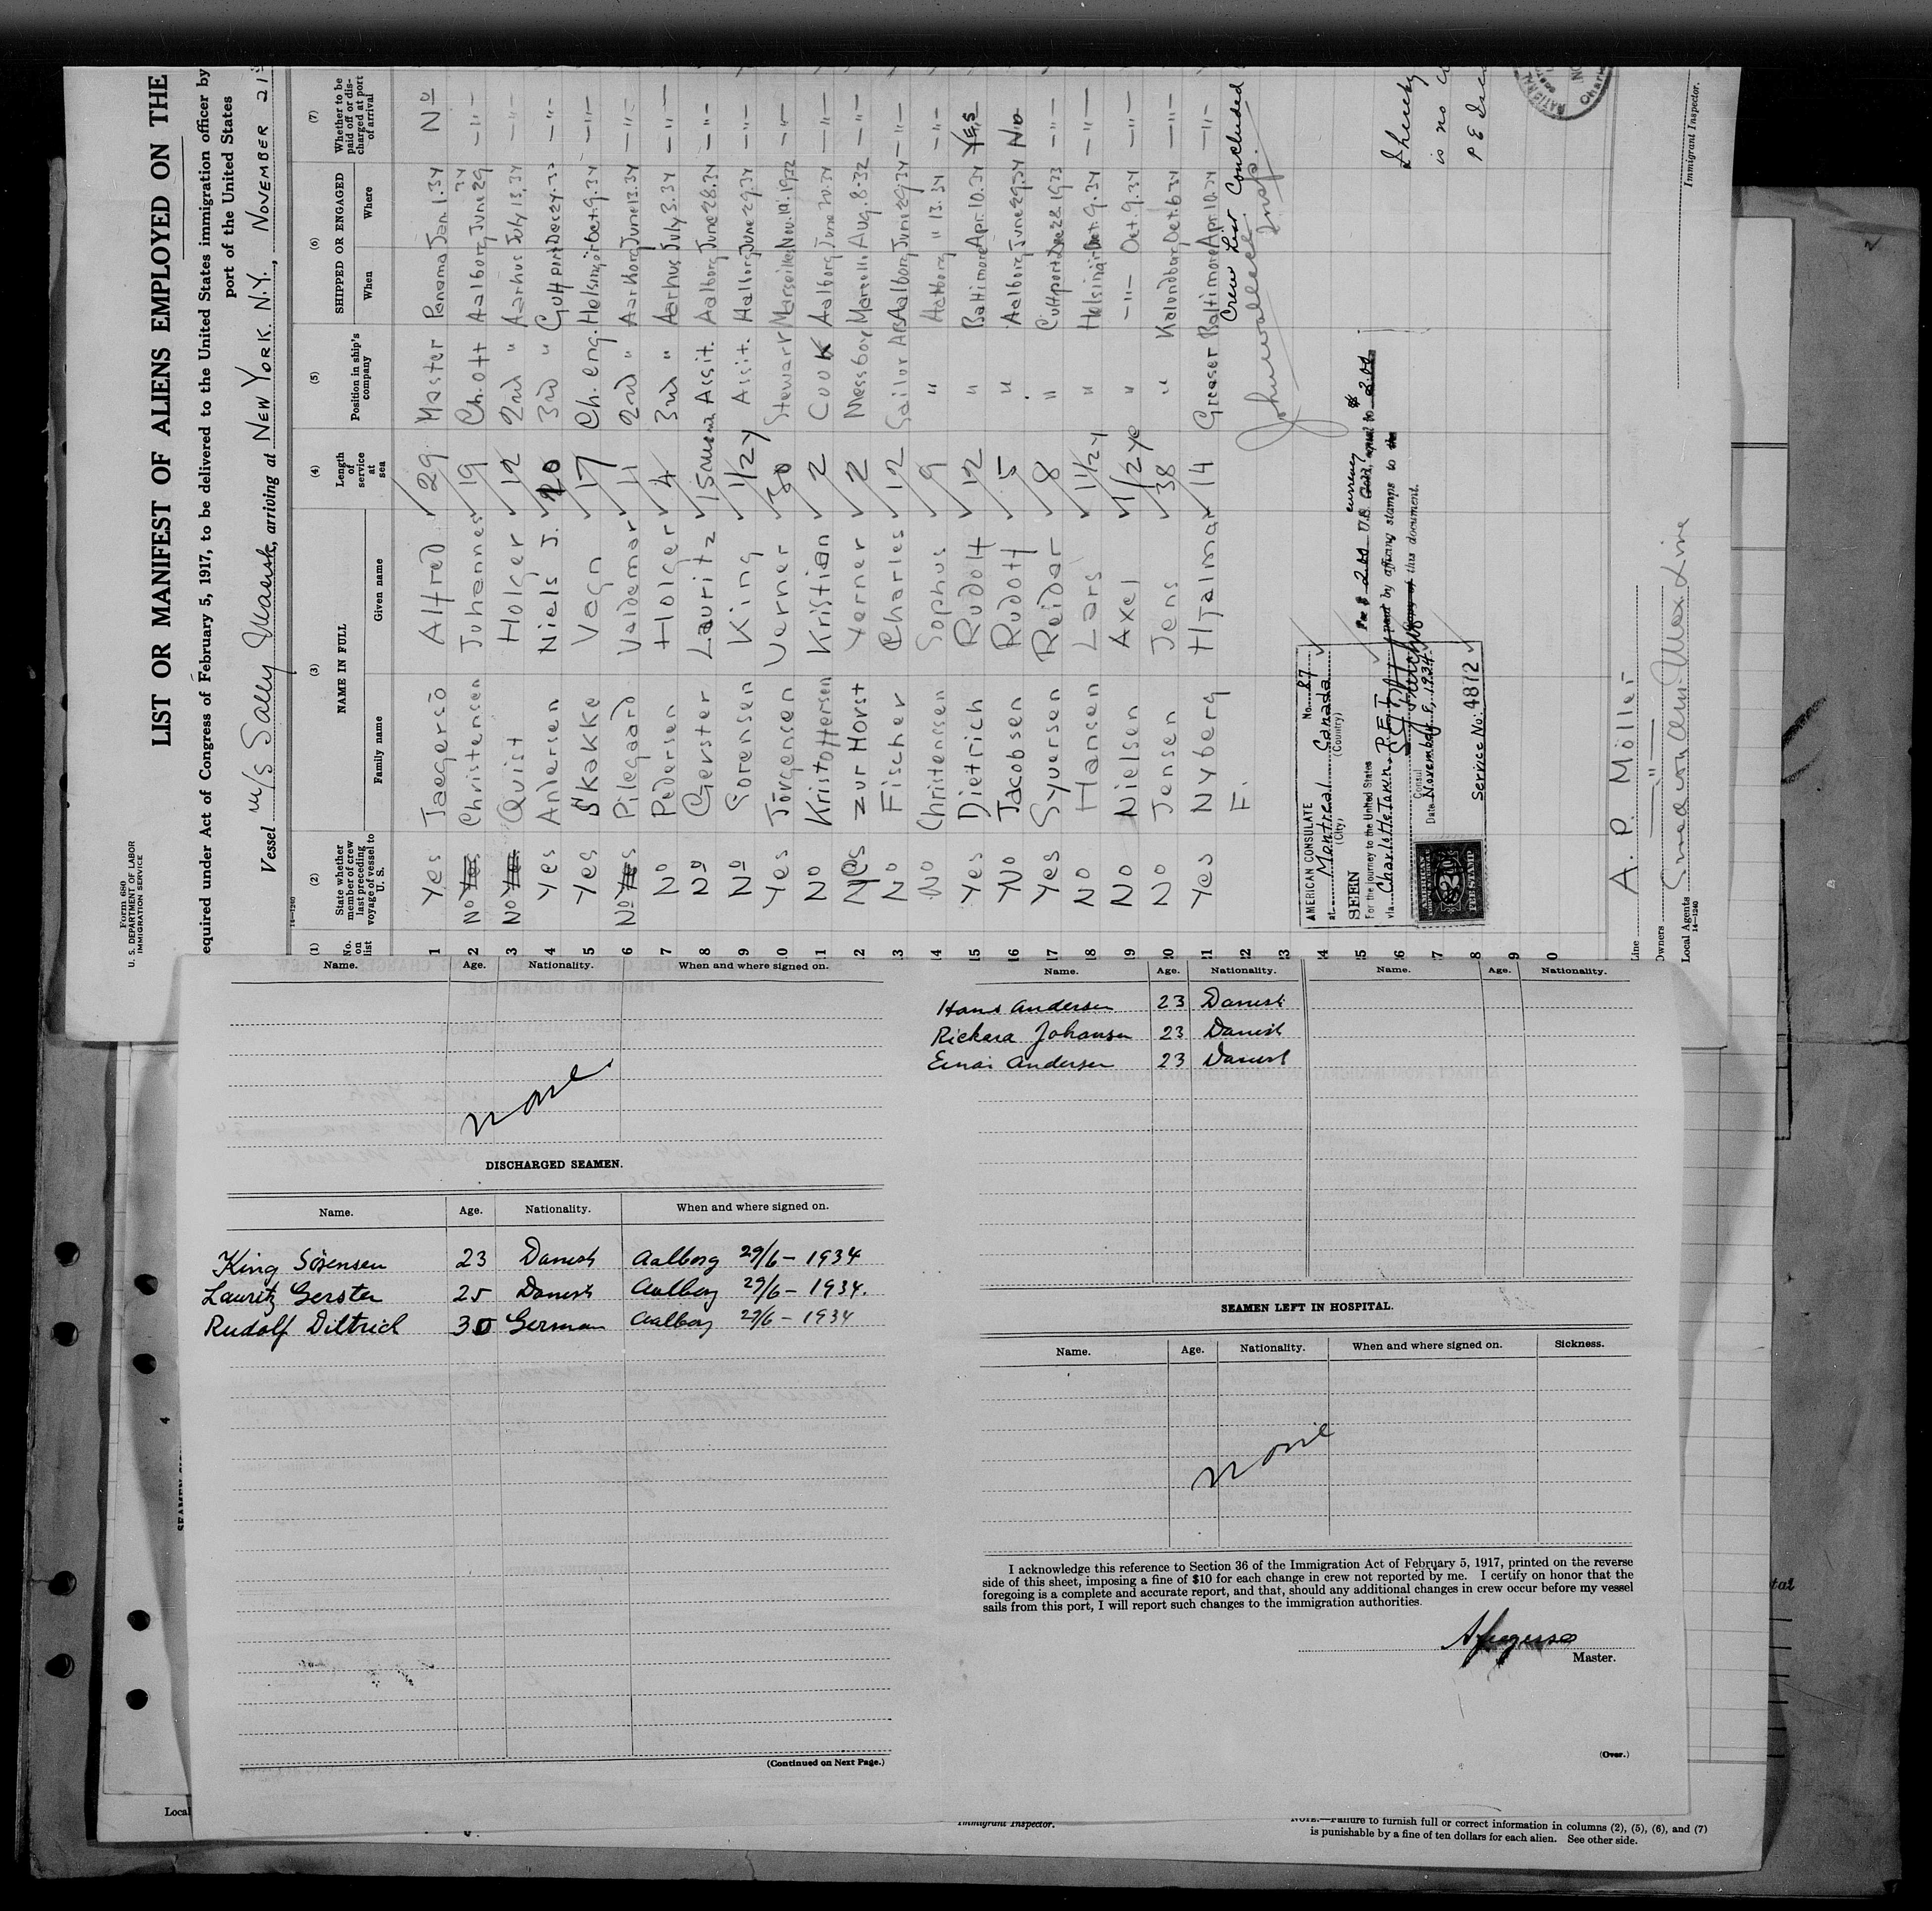 Form 680
U. S. DEPARTMENT OF LABOR
IMMIGRATION SERVICE
LIST OR MANIFEST OF ALIENS EMPLOYED ON THE
equired under Act of Congress of February 5, 1917, to be delivered to the United States immigration officer by
port of the United States
Vessel M/S Sally Maersk, arriving at NEW YORK. N.Y., NOVEMBER 21
14—1240
(1) (2) (3) (4) (5) (6) (7)
No. on list
State whether member of crew last preceding voyage of vessel to U. S.
NAME IN FULL
Family name Given name
Length of service at sea
Position in ship's company
SHIPPED OR ENGAGED
When Where
Whether to be paid off or discharged at port of arrival
1 Yes Jaegersö Alfred 29 Master Panama Jan. 1. 34 No
2 No Yes Christensen Johannes 19 Ch. Off Aalborg June 29 34 —"—
3 No Yes Qvist Holger 12 2nd " Aarhus July 13. 34 —"—
4 Yes Andersen Niels J. 20 3rd " Gulfport Dec 24. 33 —"—
5 Yes Skakke Vagn 17 Ch. eng. Helsingör Oct. 9. 34 —"—
6 No Yes Pilegaard Valdemar 11 2nd " Aalborg June 13. 34 —"—
7 No Pedersen Holger 4 3rd " Aarhus July 3. 34 —"—
8 No Gerster Lauritz 1 Assit. Aalborg June 28. 34 —"—
9 No Sorensen King 1/2 y Assit. Aalborg June 29. 34 —"—
0 Yes Jörgensen Verner 30 Stewart Marseilles Nov. 10. 1932 —"—
11 No Kristoffersen Kristian 2 Cook Aalborg June 20. 34 —"—
2 Yes zur Horst Verner 2 Messboy Marseille Aug. 8. 32 —"—
3 No Fischer Charles 12 Sailor AB Aalborg June 29 34 —"—
4 No Christensen Sophus 9 " Aalborg " 13. 34 —"—
15 Yes Dietrich Rudolf 12 " Baltimore Apr. 10. 34 Yes
16 No Jacobsen Rudolf 5 " Aalborg June 29. 34 No
17 Yes Syversen Reidar 8 " Gulfport Dec 28. 1933 —"—
18 No Hansen Lars 1 1/2 y " Helsingör Oct. 9. 34 —"—
19 No Nielsen Axel 1/2 ye " —"— Oct. 9. 34 —"—
0 No Jensen Jens 38 " Kalundborg Oct. 6 34 —"—
1 Yes Nyberg Hjalmar 14 Greaser Baltimore Apr. 10. 34 —"—
2 F.
Crew List Concluded
Insp.
3
4
5
6
7
8
9
0
AMERICAN CONSULATE No. 87
at Montreal Canada
(City) (Country)
SEEN
For the journey to the United States
via
Consul
Date November 8, 1934
Service No: 4872
Fee $ 2.00 U.S. currency equal to $ 2.00
by affixing stamps to the
this document.
I hereby
is no
Line A. P. Möller
Owners —"—
Local Agents
14—1240
Immigrant Inspector.
Name. Age. Nationality. When and where signed on.
None
DISCHARGED SEAMEN.
Name. Age. Nationality. When and where signed on.
King Sörensen 23 Danish Aalborg 29/6 – 1934
Lauritz Gerster 25 Danish Aalborg 29/6 – 1934.
Rudolf Dittrich 30 German Aalborg 29/6 – 1934
(Continued on Next Page.)
Name. Age. Nationality. Name. Age. Nationality.
Hans Andersen 23 Danish
Richard Johansen 23 Danish
Einar Andersen 23 Danish
SEAMEN LEFT IN HOSPITAL.
Name. Age. Nationality. When and where signed on. Sickness.
None
I acknowledge this reference to Section 36 of the Immigration Act of February 5, 1917, printed on the reverse
side of this sheet, imposing a fine of $10 for each change in crew not reported by me. I certify on honor that the
foregoing is a complete and accurate report, and that, should any additional changes in crew occur before my vessel
sails from this port, I will report such changes to the immigration authorities.
Master.
(Over.)
4
Local
Immigrant Inspector.
NOTE.—Failure to furnish full or correct information in columns (2), (5), (6), and (7)
is punishable by a fine of ten dollars for each alien. See other side.